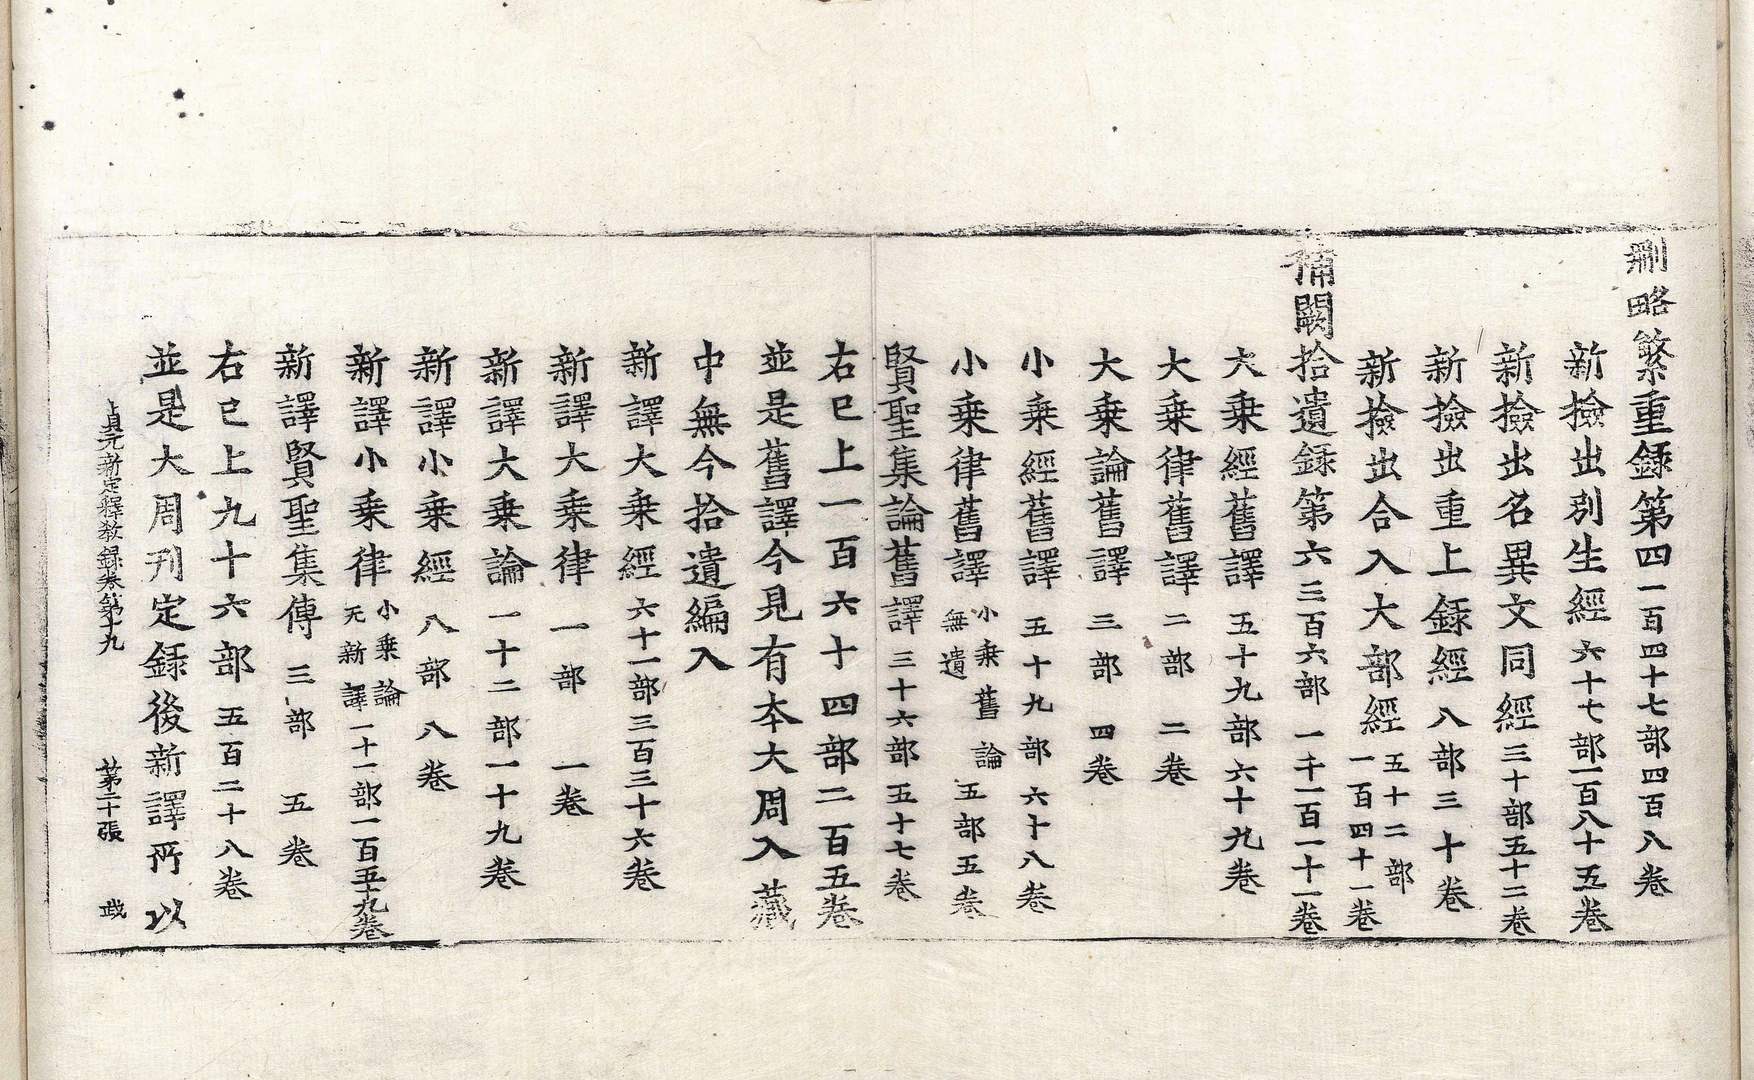 刪略繁重録第四一百四十七部四百八卷
新撿出別生經六十七部一百八十五卷
新撿出名異文同經三十部五十二卷
新撿出重上録經八部三十卷
新撿出合入大部經五十二部
一百四十一卷
補闕拾遺録第六三百六部一千一百一十一卷
大乗經舊譯五十九部六十九卷
大乗律舊譯二部二卷
大乗論舊譯三部四卷
小乗經舊譯五十九部六十八卷
小乗律舊譯小乗舊論
無遺五部五卷
賢聖集論舊譯三十六部五十七卷
右已上一百六十四部二百五卷
並是舊譯今見有本大周入藏
中無今拾遺編入
新譯大乗經六十一部三百三十六卷
新譯大乗律一部一卷
新譯大乗論一十二部一十九卷
新譯小乗經八部八卷
新譯小乗律小乗論
无新譯一十一部一百五十九卷
新譯賢聖集傳三部五卷
右已上九十六部五百二十八卷
並是大周刊定録後新譯所以
貞元新定釋教録卷第十九 第二十張